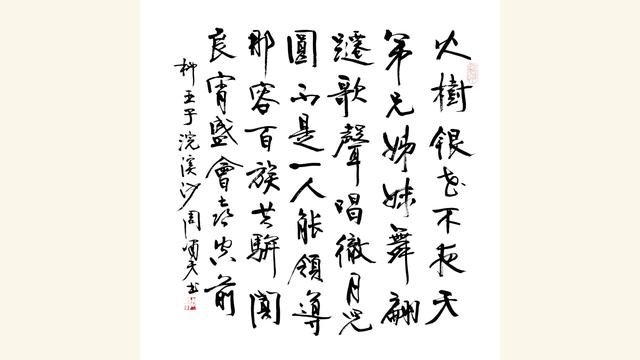 火樹银花不夜天
弟兄姊妹舞翩
躚歌聲唱徹月兒
圓不是一人能領導
那容百族共駢闐
良宵盛會喜空前
柳亚子浣溪沙周啸天书